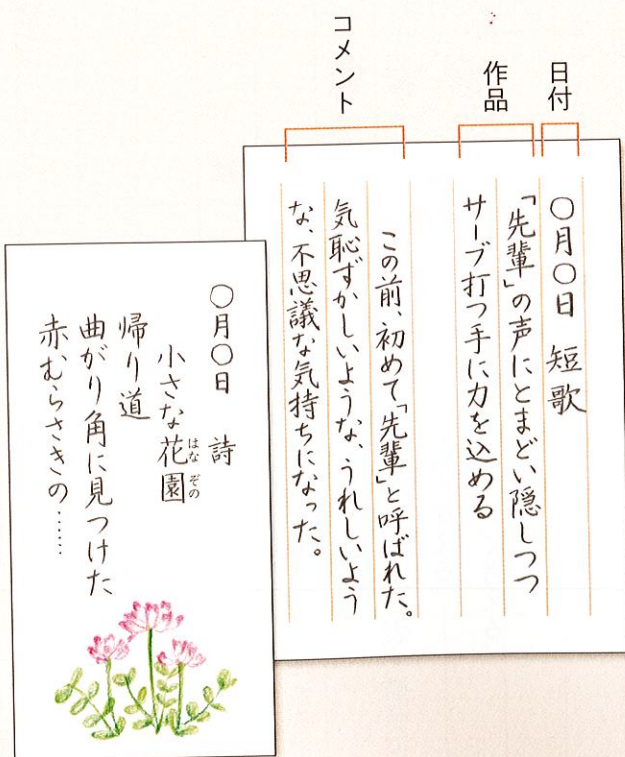 日付
作品
コメント
〇月〇日 短歌
「先輩」の声にとまどい隠しつつ
サーブ打つ手に力を込める
この前、初めて「先輩」と呼ばれた。
気恥ずかしいような、うれしいよう
な、不思議な気持ちになった。
〇月〇日 詩
小さな花園
はな ぞの
帰り道
曲がり角に見つけた
赤むらさきの……